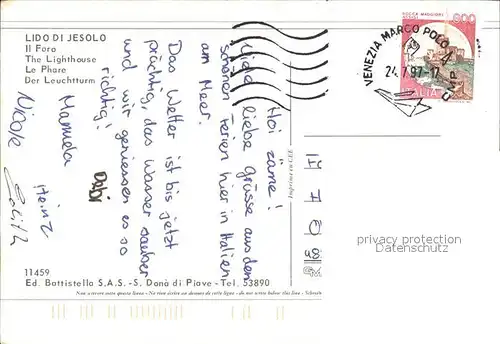 LIDO DI JESOLO
Il Faro
The Lighthouse
Le Phare
Der Leuchtturm
Hoi zäme!
Viele liebe Grüsse aus den
schönen Ferien hier in Italien
am Meer.
Das Wetter ist bis jetzt
prächtig, das Wasser sauber
und wir geniessen es so
richtig!
Debi
Manuela
Heinz
Nicole
Edith
ROCCA MAGGIORE
ASSISI
600
ITALIA
VENEZIA MARCO POLO
24.7.97-17
Imprimerie CEE
privacy protection
Datenschutz
11459
Ed. Battistella S.A.S. - S. Donà di Piave - Tel. 53890
Non scrivere sotto questa linea - Ne rien écrire au dessous de cette ligne - do not write below this line -